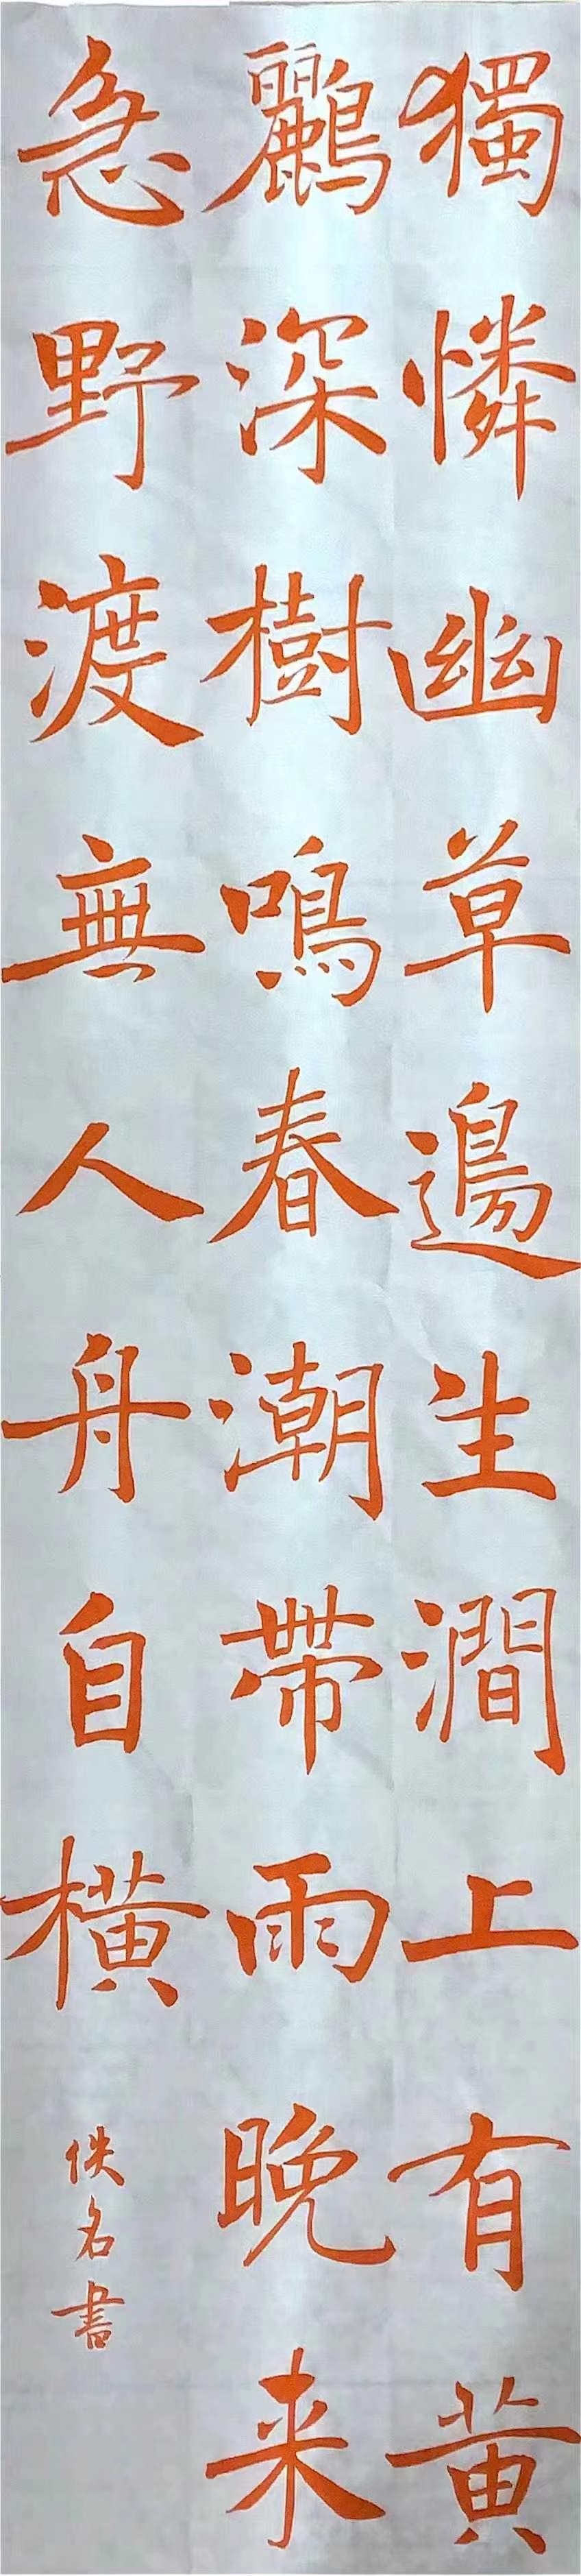 獨憐幽草邊生澗上有黄
鸝深樹鳴春潮帶雨晚来
急野渡無人舟自橫
佚名書